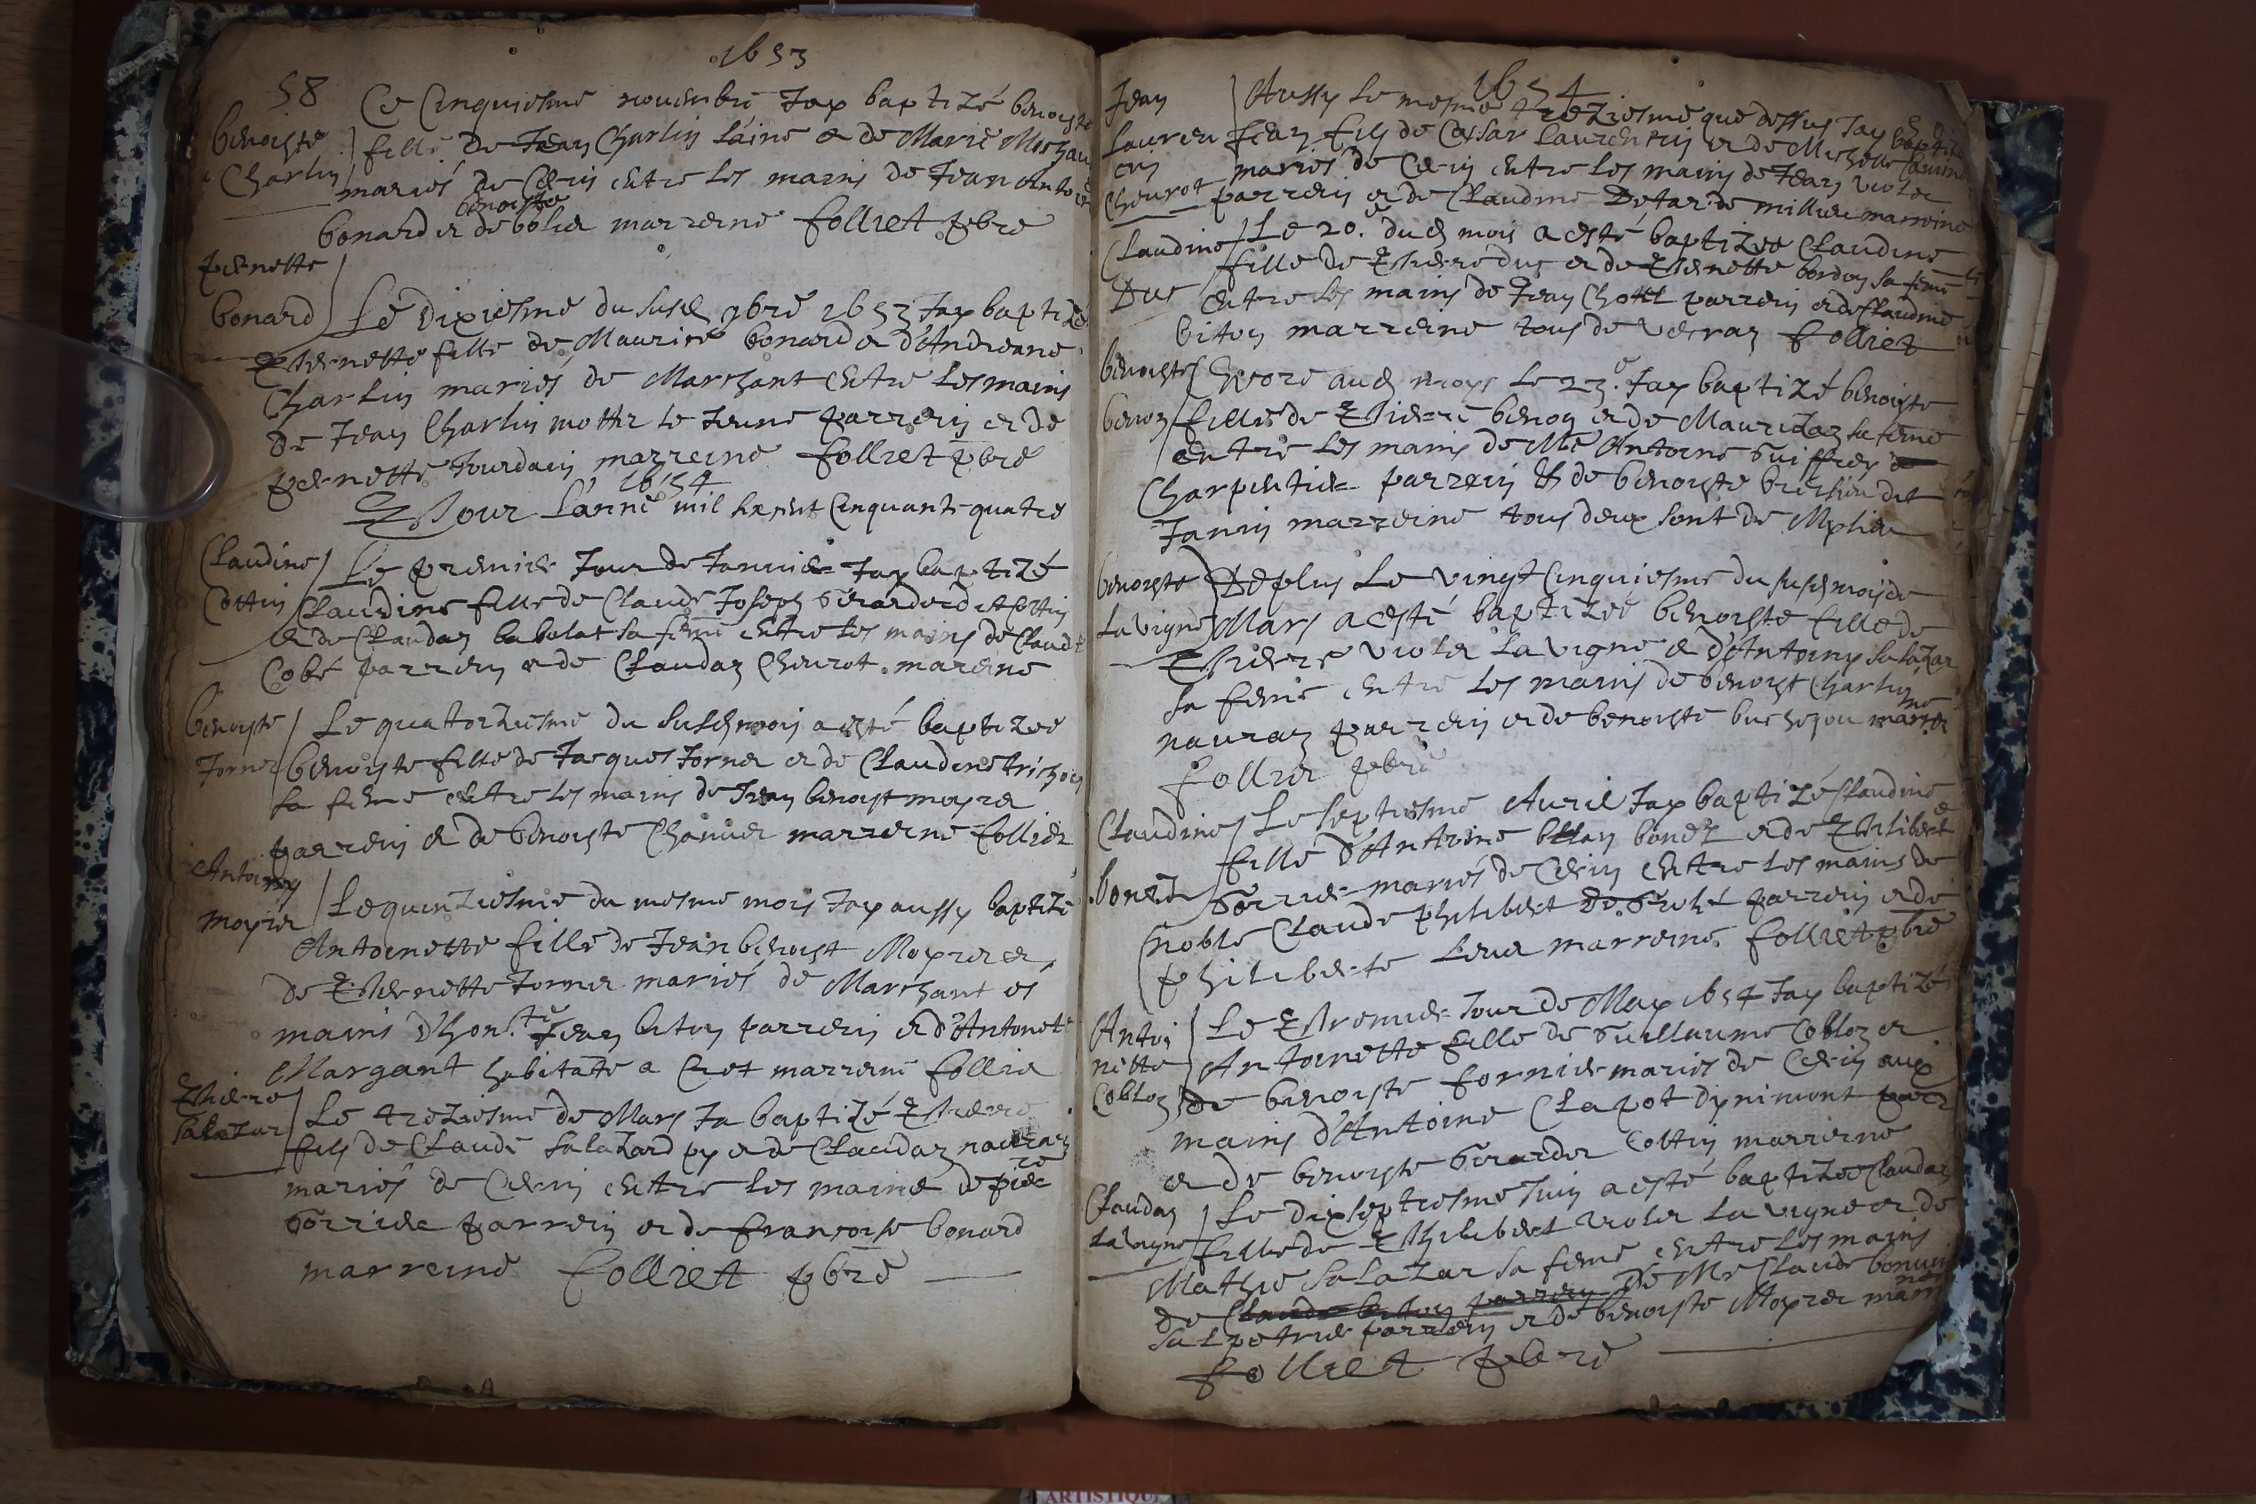 1653
58
Ce Cinquiesme novembre Jay baptizé benoiste
benoiste
Charlin
fille de Jean Charlin laine et de Marie
mariés de Cerin entre les mains de Jean Antoine
benoiste
bonard et de marreine folliet pbre
pernette
bonard
Le dixiesme du susd 9bre 1653 Jay baptizé
Pernette fille de Maurice bonard et d'Andreane
Charlin mariés de Marchant entre les mains
de Jean Charlin mothz le Jeune parrein et de
pernette Jourdain marreine folliet pbre
1654
Pour l'anné mil six cent Cinquante quatre
Claudine
Cottin
Le premier Jour de Janvier Jay baptizé
Claudine fille de Claude Joseph dit Cottin
et de Claudaz babolat sa feme entre les mains de Claude
Cobt parrein et de Claudaz Chevrot mareine
benoiste
Jornet
Le quatorziesme du susd mois a esté baptizee
benoiste fille de Jacques Jornet et de Claudine
sa feme entre les mains de Jean benoist moyret
parrein et de benoiste marreine folliet
Antoiny
moyret
Le quinziesme du mesme mois Jay aussy baptizé
Antoinette fille de Jean benoist Moyret et
de Pernette Jornet mariés de Marchant es
mains d'hon.te Jean biton parrein et d'Antoinette
Margant habitate a marreine folliet
Pierre
Salazar
Le treziesme de Mars Ja baptizé Pierre
fils de Claude Salazard py et de Claudaz navraz
mariés de Cerin entre les mains de pierre
Gorrier parrein et de francoise bonard
marreine folliet pbre
1654
Jean
Lauren
cin
Chevrot
Aussy le mesme treziesme que dessus Jay baptizé
Jean fils de Cesar Laurencin et de Michelle
mariés de Cerin entre les mains de Jean violet
parrein et de Claudine de millieu marreine
Claudine
Duc
Le 20.e dud mois a esté baptizee Claudine
fille de Pierre duc et de Pernette bordon sa feme
entre les mains de Jean parrein et de Claudine
biton marreine tous de verraz folliet
benoiste
benon
Encore aud moys le 23.e Jay baptizé benoiste
fille de Pierre benon et de sa feme
entre les mains de Me Antoine Guiffrey
Charpentier parrein et de benoiste dit
Janin marreine tous deux sont de
benoiste
Lavigne
De plus Le vingt Cinquiesme du susd mois de
Mars a esté baptizee benoiste fille de
Pierre violet Lavigne et d'Antoiny salazar
sa feme entre les mains de benoist Charlin
navraz parrein et de benoiste marreine
folliet pbre
Claudine
bonet
Le septiesme Avril Jay baptizé Claudine
fille d'Antoine bonet et de Philiberte
Gorrier mariés de Cerin entre les mains de
noble Claude philibert parrein et de
philiberte marreine folliet pbre
Antoi
nette
Cobloz
Le Premier Jour de May 1654 Jay baptizé
Antoinette fille de Guillaume Cobloz et
de benoiste fornier mariés de Cerin aux
mains d'Antoine Clapot
et de benoiste Girardet Cottin marreine
Claudaz
Lavigne
Le dixseptiesme Juin a esté baptizee Claudaz
fille de Philibert violet Lavigne et de
Mathie Salazar sa feme entre les mains
de Claude biton parrein De Me Claude
salpetrier parrein et de benoiste Moyret marreine
folliet pbre
ARTISTIQU